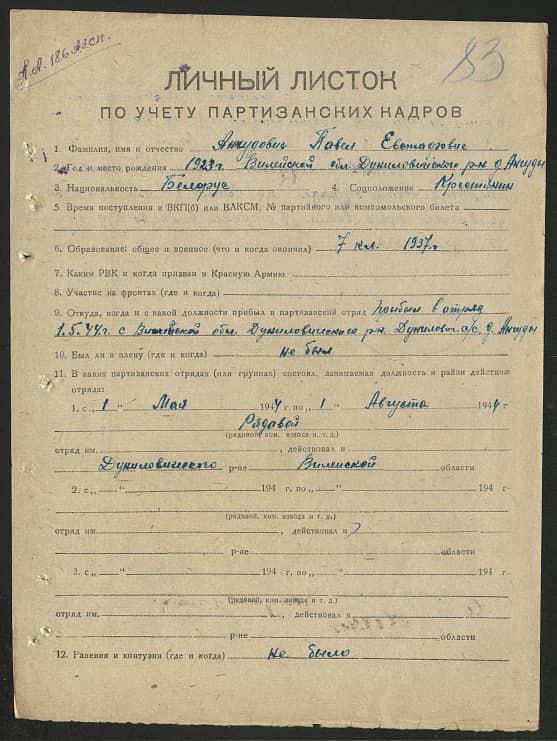 А.А. 186
83
ЛИЧНЫЙ ЛИСТОК
ПО УЧЕТУ ПАРТИЗАНСКИХ КАДРОВ
1. Фамилия, имя и отчество Анкудович Павел Евстафович
2. Год и место рождения 1923 г. Вилейской обл. Дуниловичского р-н д. Анкуды
3. Национальность Белорус 4. Соцположение Крестьянин
5. Время поступления в ВКП(б) или ВЛКСМ, № партийного или комсомольского билета
6. Образование: общее и военное (что и когда окончил) 7 кл. 1937 г.
7. Каким РВК и когда призван в Красную Армию
8. Участие на фронтах (где и когда)
9. Откуда, когда и с какой должности прибыл в партизанский отряд Прибыл в отряд
1.5.44 г. с Вилейской обл. Дуниловичского р-н. Дунилович. с/с. д. Анкуды
10. Был ли в плену (где и когда) не был
11. В каких партизанских отрядах (или группах) состоял, занимаемая должность и район действия
отряда:
1. с „ 1 “ Мая 1944 г. по „ 1 “ Августа 1944 г.
Рядавой
(рядовой, ком. взвода и т. д.)
отряд им. , действовал в
Дуниловичского р-не Вилейской области
2. с „ “ 194 г. по „ “ 194 г.
(рядовой, ком. взвода и т. д.)
отряд им. , действовал в
р-не области
3. с „ “ 194 г. по „ “ 194 г.
(рядовой, ком. взвода и т. д.)
отряд им. , действовал в
р-не области
12. Ранения и контузии (где и когда) не было